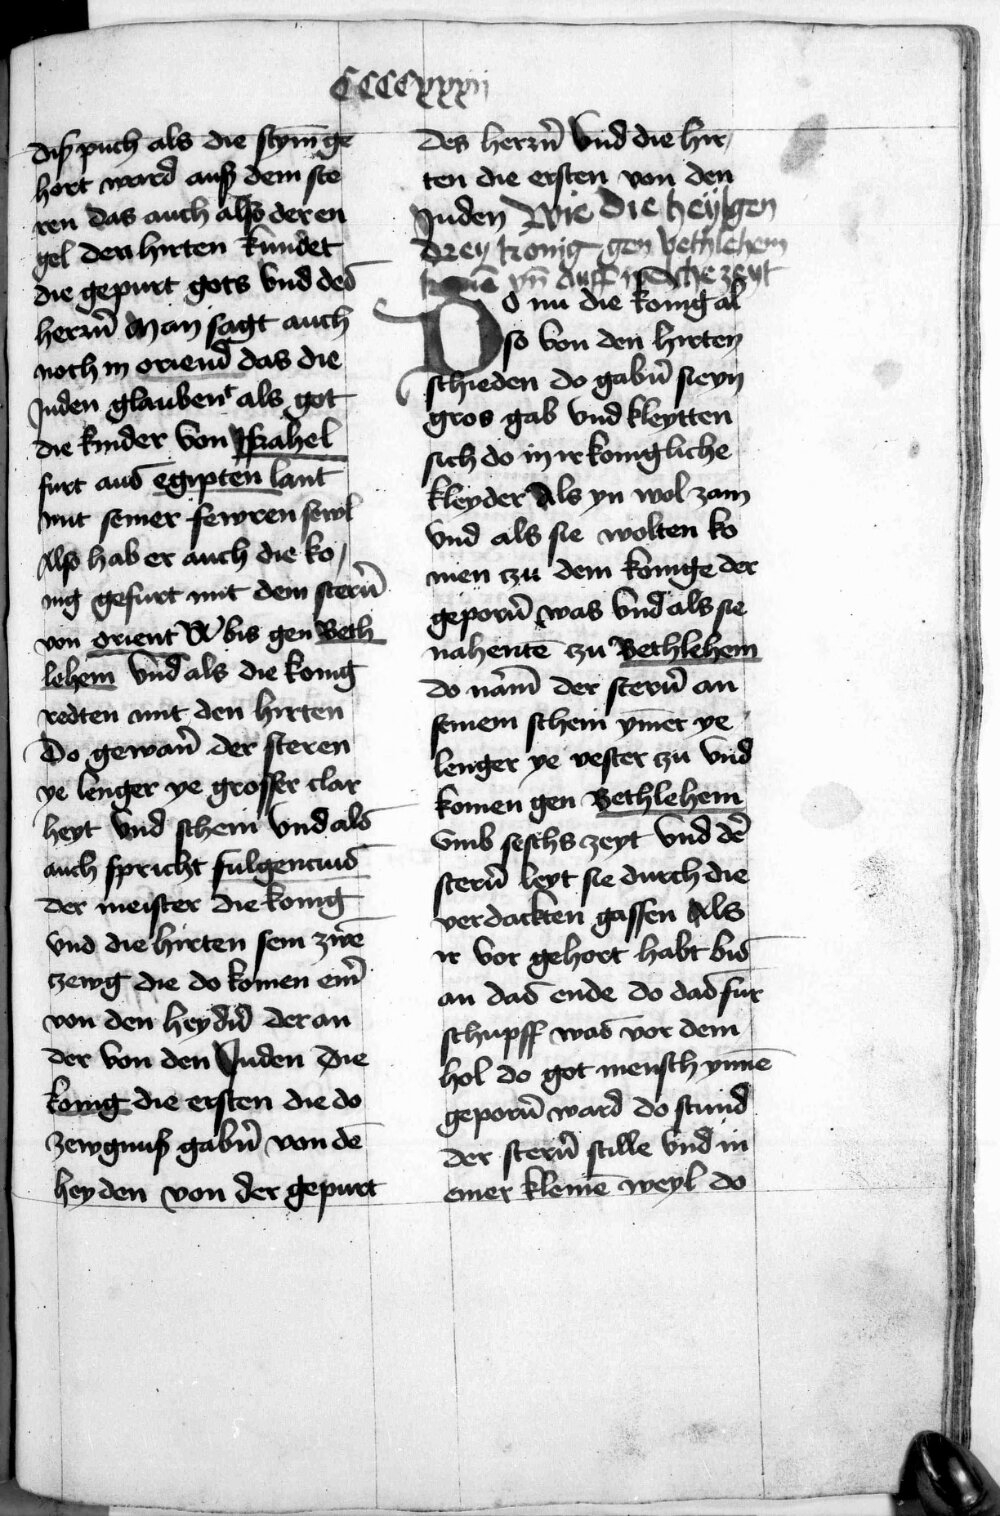 CCCCxxxii
diß puch als die stym̄ ge
hort ward auß dem ste
ren das auch also der en
gel den hirten kundet
die gepurt gots vnd des
herrn̄ Man sagt auch
noch in oriend das die
Juden glauben als got
die kinder von Jsrahel
furt aus egipten lant
mit seiner fewren sewl
Also hab er auch die ko/
nig gefurt mit dem stern̄
von orient bis gen Beth
lehem vnd als die konig
redten mit den hirten
Do gewan̄ der steren
ye lenger ye grosser clar
heyt vnd schein vnd als
auch spricht fulgencius
der meister die konig
vnd die hirten sein zwē
czewg die do komen ein̄
von den heydn̄ der an
der von den Juden Die
konig die ersten die do
zewgnuß gabn̄ von dē
heyden von der gepurt
des herrn̄ vnd die hir/
ten die ersten von den
Juden Wie die heyligen
drey konig gen Bethlehem
komē vn̄ auff welche zeyt
DO nu die konig al
so von den hirten
schieden do gabn̄ sie yn
gros gab vnd kleytten
sich do in ir konigliche
kleyder Als yn wol zam
vnd als sie wolten ko
men czu dem konige der
geporn̄ was vnd als sie
nahentē czu Bethlehem
do nam̄ der stern̄ an
seinem schein ym̄er ye
lenger ye vester zu vnd
komen gen Bethlehem
vmb seschs zeyt vnd dē
stern̄ leyt sie durch die
verdackten gassen Als
ir vor gehort habt bis
an das ende do das fur
schupff was vor dem
hol do got mensch ynnē
geporn̄ ward do stund
der stern̄ stille vnd in
einer kleinē weyl do